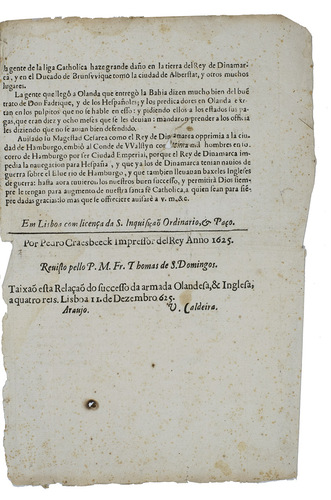 la gente de la liga Catholica haze grande daño en la tierra del Rey de Dinamar-
ca, y en el Ducado de Brunsvvique tomo la ciudad de Alberstat, y otros muchos
lugares.
La gente que llegô a Olanda que entregò la Babia dizen mucho bien del buẽ
trato de Don Fadrique, y de los Hespañoles; y los predicadores en Olanda exi-
tan en los pulpitos que no se hable en esso; y pidiendo ellos a los estados sus pa-
gas, que eran diez y ocho meses que se les deuian: mandaron prender a los officia
les diziendo que no se auian bien defendido.
Auisado su Magestad Cesarea como el Rey de Dinamarca opprimia a la ciu
dad de Hamburgo, embiò al Conde de VValstyn con mil hombres en so-
corro de Hamburgo por ser Ciudad Emperial, porque el Rey de Dinamarca im
pedia la nauegacion para Hespaña, y que ya los de Dinamarca tenian nauios
de guerra sobre el Elue rio de Hamburgo, y que tambien lleuauan baxeles Ingleses
de guerra: hasta aora tuuieron los nuestros buen successo, y permitirà Dios siem-
pre le tengan para augmento de nuestra santa fê Catholica, a quien sean para siẽ-
pre dadas gracias lo mas que se offreciere auisarè a v. m. &c.
Em Lisboa com licença da S. Inquisição Ordinario, & Paço.
Por Pedro Craesbeeck Impressor del Rey Anno 1625.
Reuisto pello P. M. Fr. Thomas de S. Domingos.
Taixaõ esta Relação do successo da armada Olandesa, & Inglesa,
a quatro reis. Lisboa 11. de Dezembro 625.
Araujo. V. Caldeira.